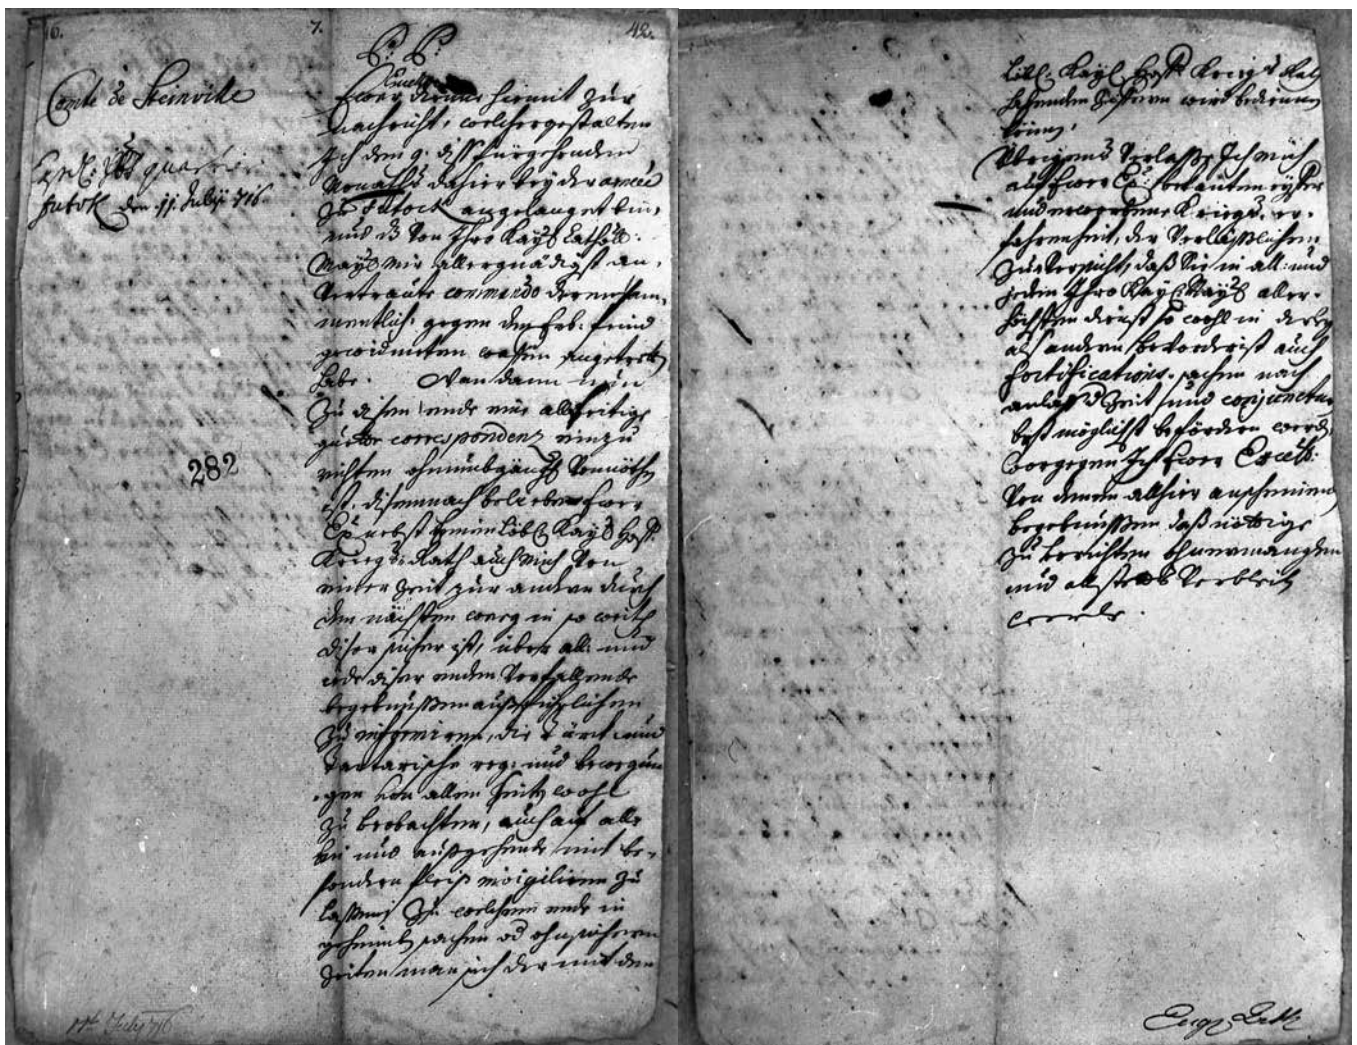 6.
7.
42.
P: P:
Comte de Steinville
Exped: quartier
Futok den 11. July 716
282
Euer dienet hiemit zur
nachricht, welchergestalten
Ich den 9. diß fürgehenden
Monaths dahier bey der armée
zu Futock angelanget bin,
und von Ihro Kayl: Cathol:
May: mir allergnädigst an-
vertraute commando der
gegen den Erb-feind
gewidmeten waffen angetretten
habe. Wan dann nun
zu disem ende eine allseitige
guette correspondenz einzu
richten ohnumbgänglich vonnöthen
ist, disemnach belieben Euer
Ex: nebst einem löbl: Kayl: Hoff
Kriegs-Rath auch mich von
einer Zeit zur andern durch
den nächsten weeg in so weith
diser sicher ist, über all- und
jede diser enden vorfallende
begebnußen außführlichen
zu informiren, die Türck- und
Tartarische reg- und bewegun
-gen von allen seiten wohl
zu beobachten, auch auf alle
ein und außgehende mit be-
sondern fleiß invigiliren zu
laßen; zu welchem ende in
geheimben sachen od ohnsicheren
Zeiten man sich der mit dem
löbl: Kayl: Hoff Kriegs Rath
habenden Ziffern wird bedienen
können.
Übrigens verlaße Ich mich
auf Euer Ex: bekanten eyffer
und erworbene Kriegs-er-
fahrenheit, der verläßlichen
Zuversicht, daß Sie in all- und
jeden Ihro Kayl: May: aller-
höchsten dienst so wohl in
als andern bevorderist auch
fortifications-sachen nach
anlaß d Zeit und conjuncturen
best möglichst befördern werden,
Woorgegen Ich Euer Excell:
von denen allhier anscheinend
begebnußen daß nöttige
zu berichten ohnermanglen
und allstets verbleiben
werde.
11t July 716